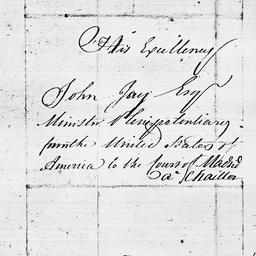 His Excellency
John Jay Esq
Minister Plenipotentiary
from the United States of
America to the Court of Madrid
a Chaillot